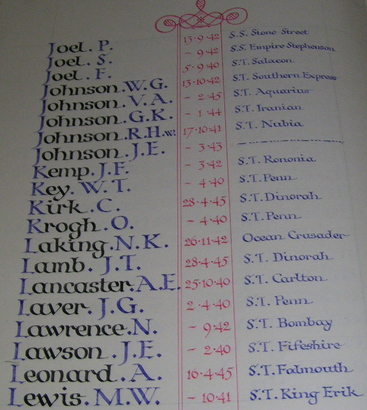 Joel. P. 13·9·42 S.S. Stone Street
Joel. S. - 9·42 S.S. Empire Stephenson
Joel. F. 5·9·40 S.T. Salacon
Johnson. W.G. 13·10·42 S.T. Southern Express
Johnson. V.A. - 2·45 S.T. Aquarius
Johnson. G.K. - 1·44 S.T. Iranian
Johnson. R.H.W. 17·10·41 S.T. Nubia
Johnson. J.E. - 3·43
Kemp. J.F. - 3·42 S.T. Rononia
Key. W.T. - 4·40 S.T. Penn
Kirk. C. 28·4·45 S.T. Dinorah
Krogh. O. - 4·40 S.T. Penn
Laking. N.K. 26·11·42 Ocean Crusader
Lamb. J.T. 28·4·45 S.T. Dinorah
Lancaster. A.E. 25·10·40 S.T. Carlton
Laver. J.G. 2·4·40 S.T. Penn
Lawrence. N. - 9·42 S.T. Bombay
Lawson. J.E. - 2·40 S.T. Fifeshire
Leonard. A. 16·4·45 S.T. Falmouth
Lewis. M.W. - 10·41 S.T. King Erik